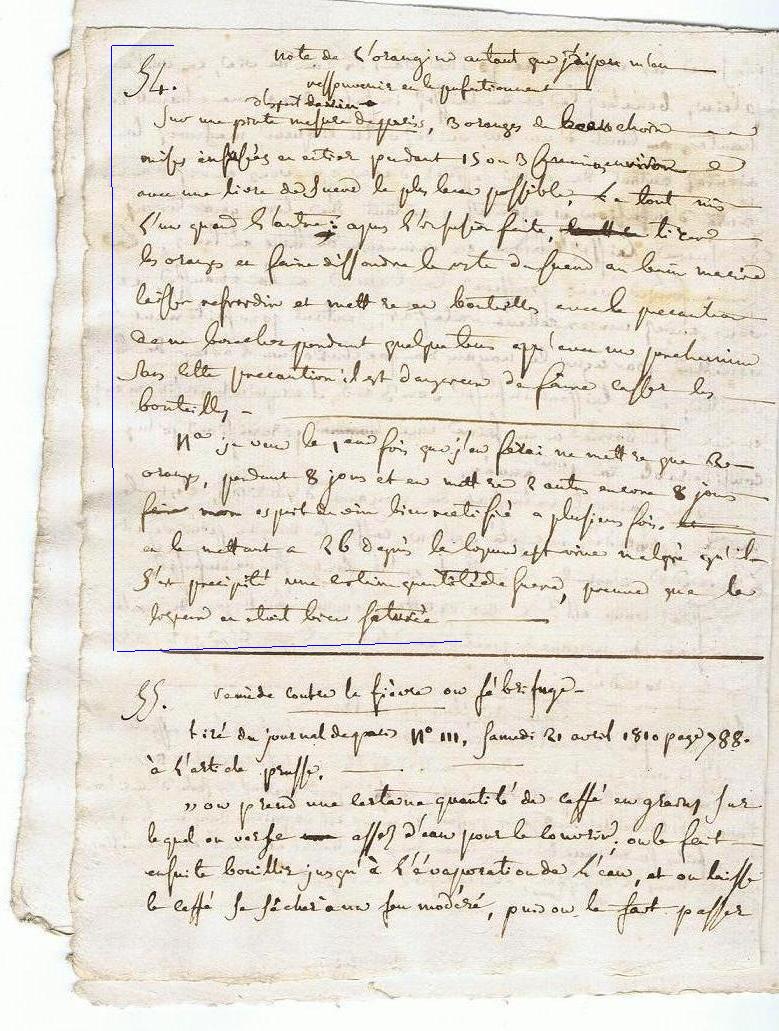 54.
note de L'orangine autant que j'ai pu m'en
ressouvenir en la
d'esprit de vin
Sur une pinte mesure de paris, 3 oranges de beau choix
mises en entier pendant 15 ou environ
avec une livre de Sucre le plus beau possible, Le tout mis
L'un quand L'autre: apres l'infusion faite, tirer
les oranges et faire dissoudre le reste du Sucre au bain marie
laisser refroidir et mettre en bouteilles avec la precaution
de ne boucher pendant quelque tems qu'avec un parchemin
Sans cette precaution il est dangereux de faire casser les
bouteilles -
Na je veux la 1ere fois que j'en ferai ne mettre que 2
oranges, pendant 8 jours et en mettre 2 autres encore 8 jours
esprit de vin bien rectifié a plusieurs fois.
a le mettant a 26 degrés la malgré qu'il
S'est precipité une certaine quantité de Sucre, preuve que la
liqueur en etoit bien Saturée
55. remède contre la fièvre ou fébrifuge
tiré du journal de paris N° 111, Samedi 21 avril 1810 page 788.
à L'article prusse.
" on prend une certaine quantité de caffé en grains Sur
lequel on verse assez d'eau pour le couvrir, on le fait
ensuite bouillir jusqu'à L'évaporation de L'eau, et on laisse
le caffé Se Sécher à un feu modéré, puis on le fait passer